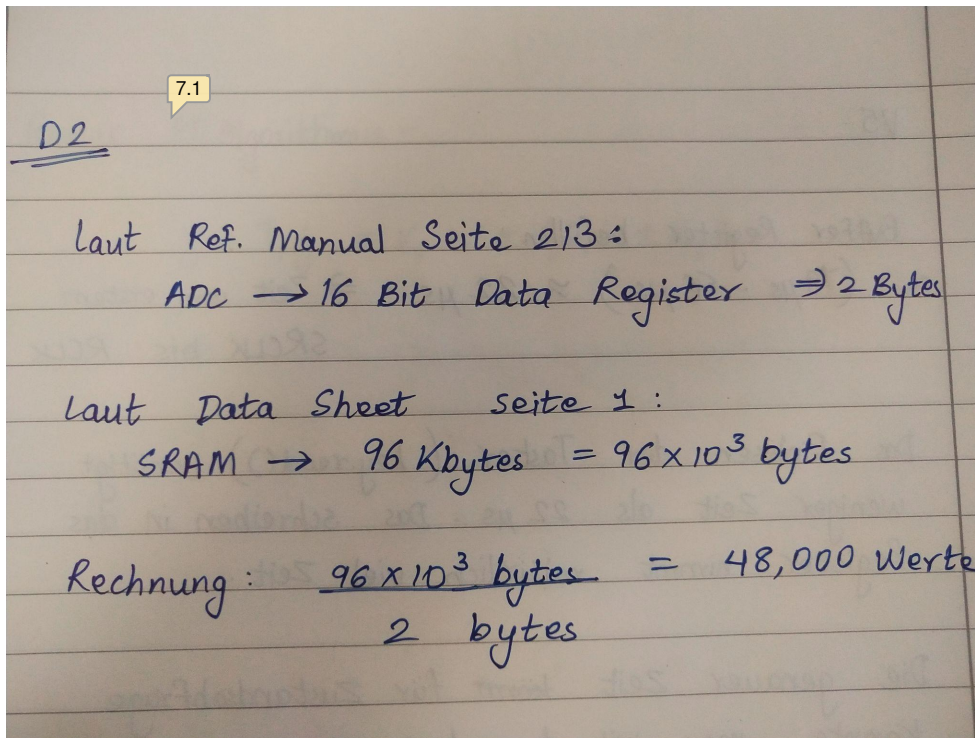 7.1
D2
Laut Ref. Manual Seite 213:
ADC → 16 Bit Data Register ⇒ 2 Bytes
Laut Data Sheet seite 1:
SRAM → 96 Kbytes = 96 x 10³ bytes
Rechnung: 96 x 10³ bytes = 48,000 Werte
2 bytes